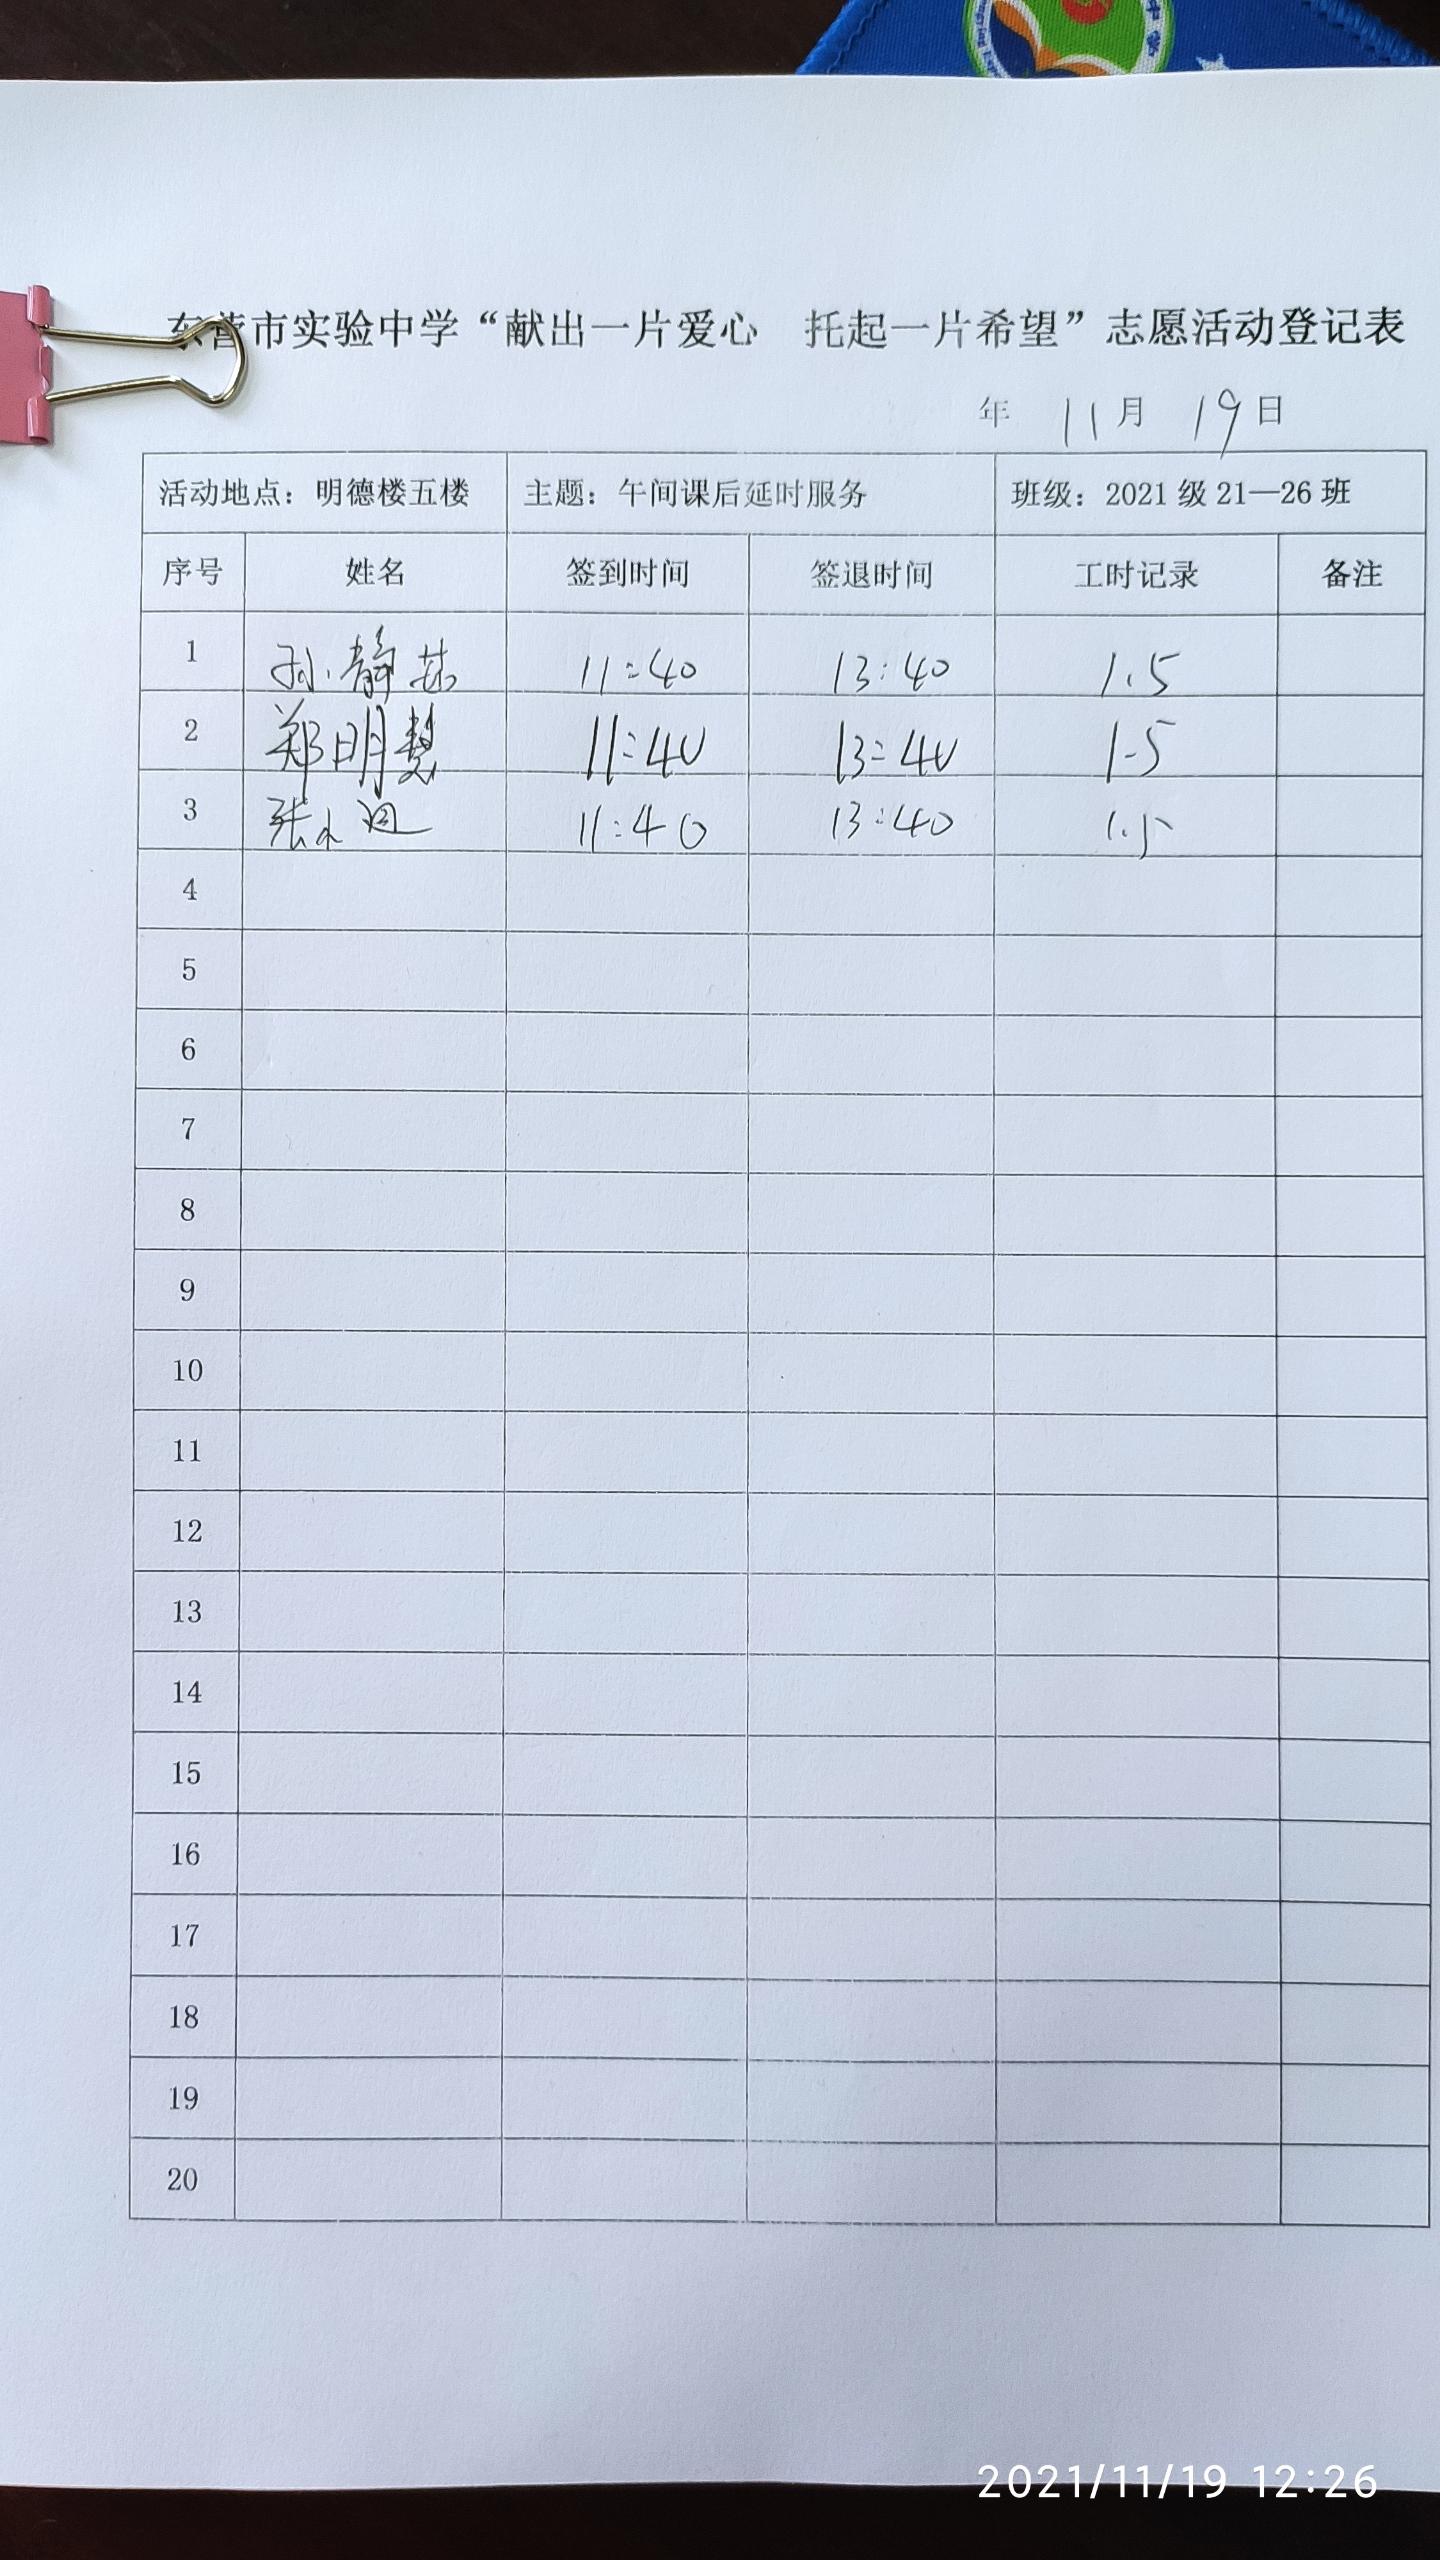 东营市实验中学“献出一片爱心 托起一片希望”志愿活动登记表
年 11月 19日
活动地点：明德楼五楼 主题：午间课后延时服务 班级：2021级21—26班
序号 姓名 签到时间 签退时间 工时记录 备注
1 孙静 11:40 13:40 1.5
2 郑明慧 11:40 13:40 1.5
3 张 11:40 13:40 1.5
4
5
6
7
8
9
10
11
12
13
14
15
16
17
18
19
20
2021/11/19 12:26